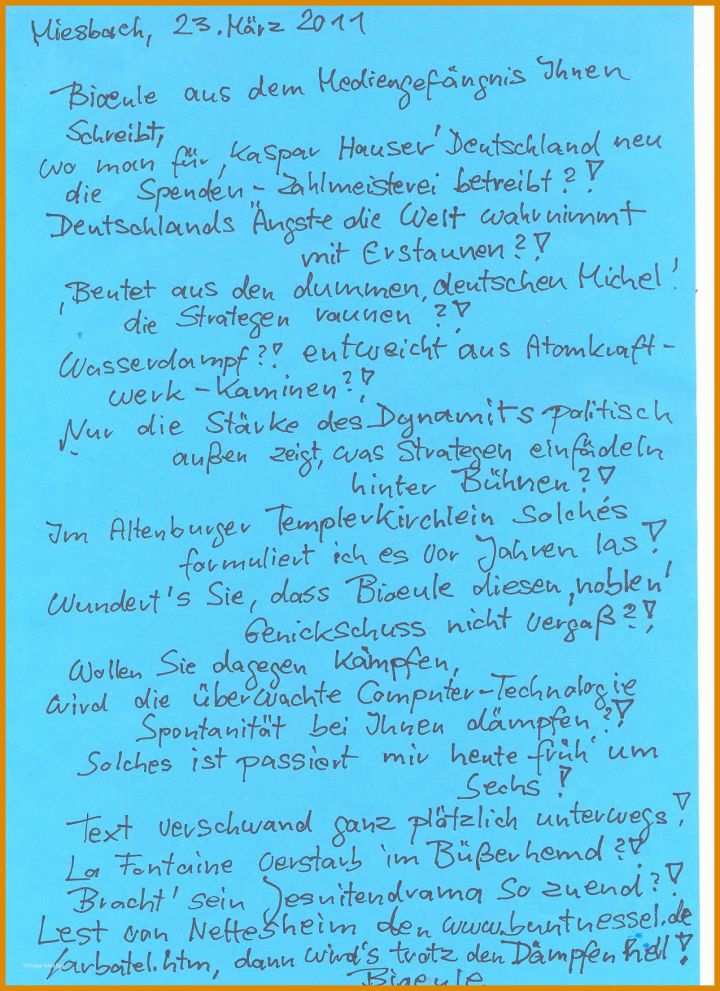 Miesbach, 23. März 2011
Bioeule aus dem Mediengefängnis Ihnen
Schreibt,
wo man für ‚Kaspar Hauser' Deutschland neu
die Spenden-Zahlmeisterei betreibt?!
Deutschlands Ängste die Welt wahrnimmt
mit Erstaunen?!
‚Beutet aus den dummen, deutschen Michel'
die Strategen raunen?!
Wasserdampf?! entweicht aus Atomkraft-
werk-Kaminen?!
Nur die Stärke des Dynamits politisch
außen zeigt, was Strategen einfädeln
hinter Bühnen?!
Im Altenburger Templerkirchlein Solches
formuliert ich es vor Jahren las!
Wundert's Sie, dass Bioeule diesen ‚noblen'
Genickschuss nicht vergaß?!
Wollen Sie dagegen kämpfen,
wird die überwachte Computer-Technologie
Spontanität bei Ihnen dämpfen?!
Solches ist passiert mir heute früh um
Sechs!
Text verschwand ganz plötzlich unterwegs!
La Fontaine verstarb im Büßerhemd?!
Bracht' sein Jesuitendrama So zuend?!
Lest van Nettesheim den www.buntnessel.de
/arbatel.htm, dann wird's trotz den Dämpfen hell!
Bioeule